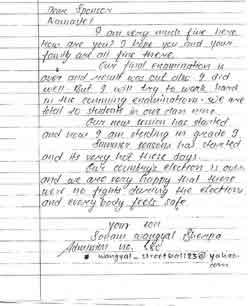 Dear Sponsor
Namaste!
I am very much fine here
How are you? I hope you and your
family are all fine there.
Our final examination is
over and result was out also I did
well. But I will try to work hard
in the comming examination. we are
total 20 students in our class now.
Our new session has started
and now I am studing in grade
Summer season has started
and its very hot these days.
Our country's election is over
and we are very happy that there
were no fights during the election
and every body feels safe.
your son
Sonam wangyal Sherpa
Admission no.
wangyal_
com